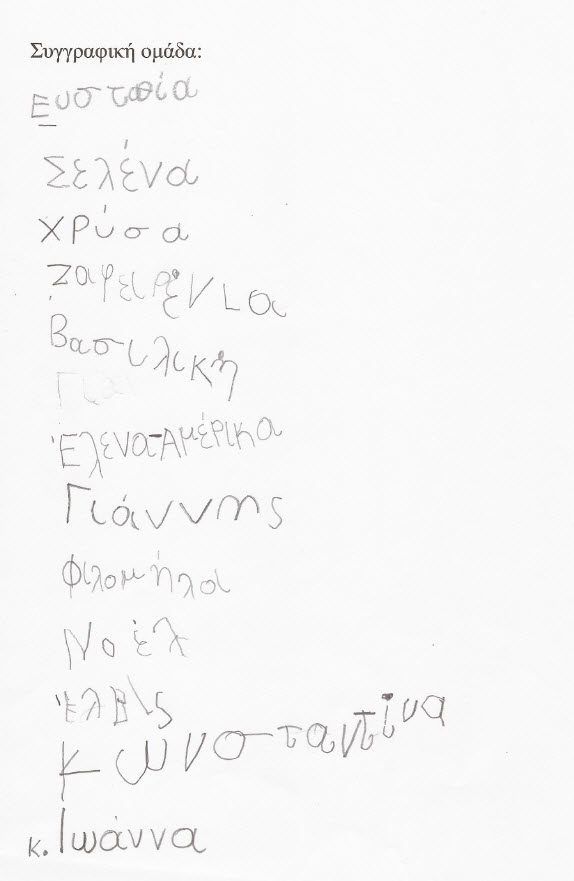 Συγγραφική ομάδα:
Ευσταθία
Σελένα
Χρύσα
Ζαφειρένια
Βασιλική
Για
Έλενα-Αμέρικα
Γιάννης
Φιλομήλα
Νοέλ
Έλβις
Κωνσταντίνα
κ. Ιωάννα